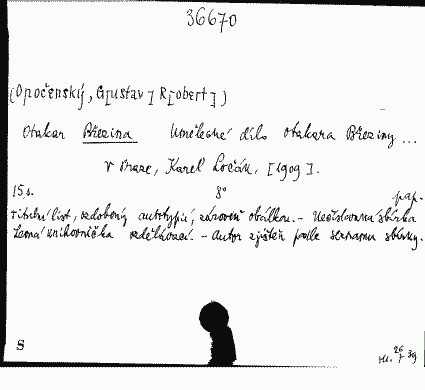 36670
(Opočenský, G[ustav] R[obert])
Otakar Březina Umělecké dílo Otakara Březiny ...
V Praze, Karel Ločák, [1909].
15 s. 8° pap.
Titulní list, ozdobený autotypií, zároveň obálkou. - Nečíslovaná sbírka
Levná knihovnička vzdělávací. - Autor zjištěn podle seznamu sbírky.
S 26 7 39